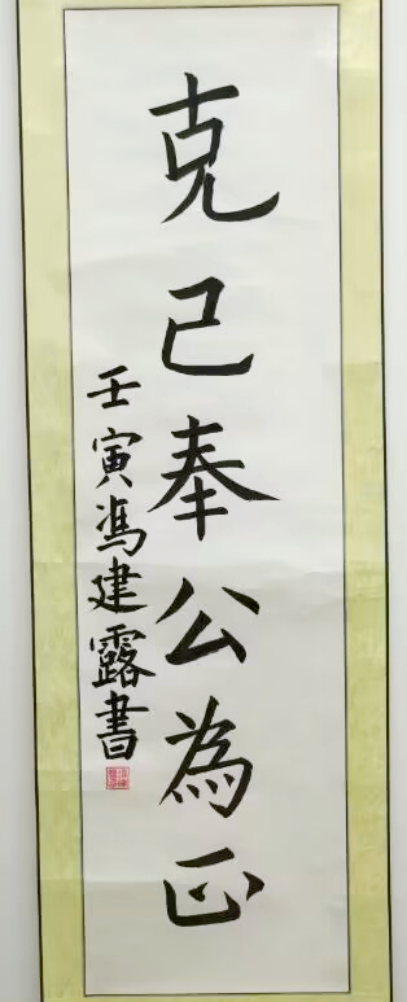 克己奉公為正
壬寅馮建露書